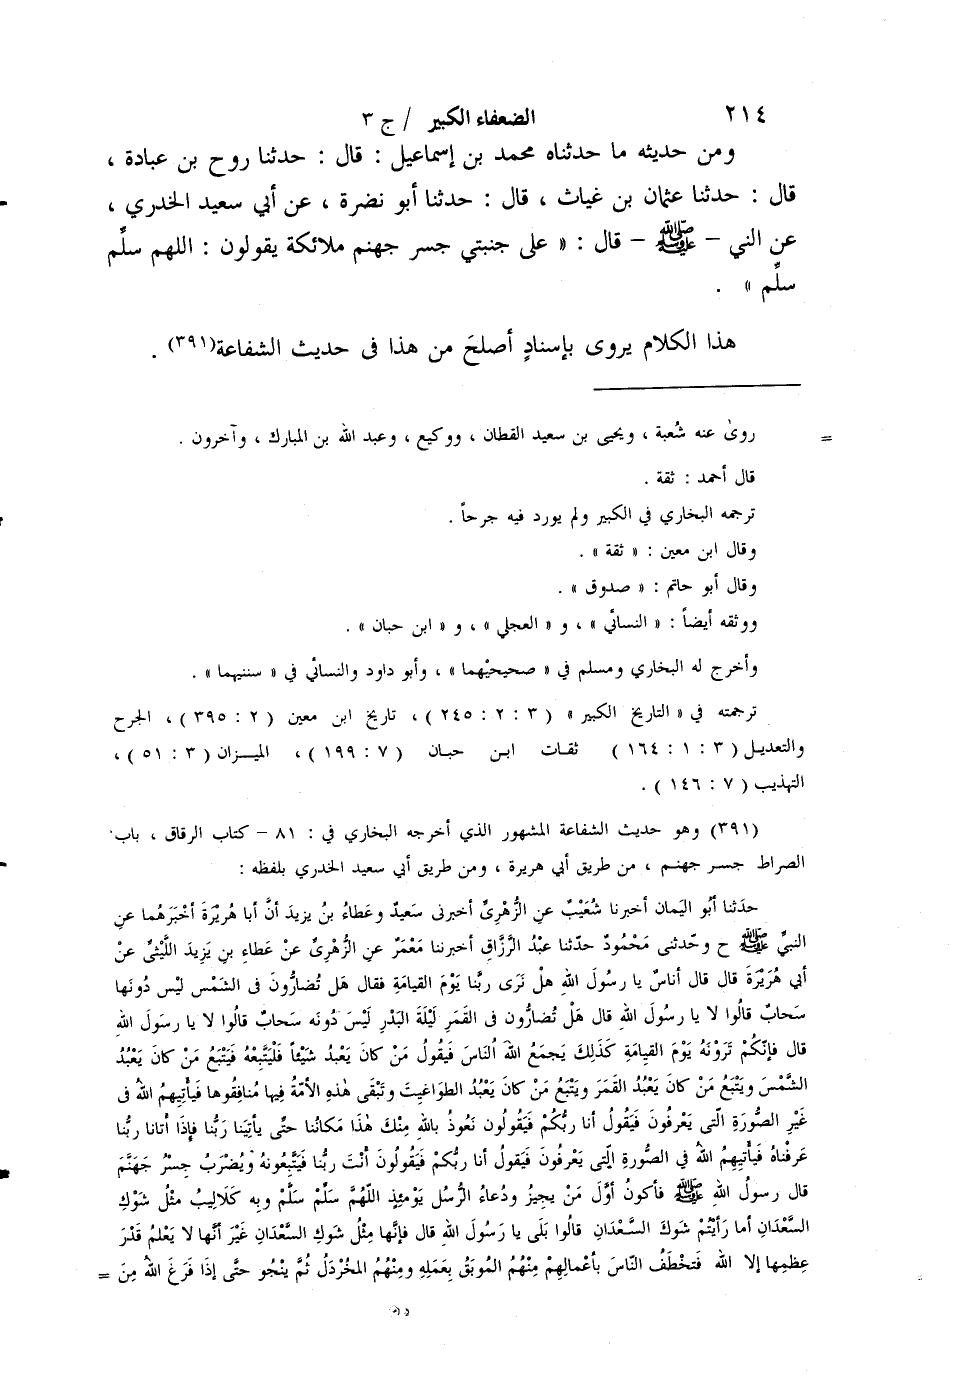 ٢١٤ الضعفاء الكبير / ج ٣
ومن حديثه ما حدثناه محمد بن إسماعيل : قال : حدثنا روح بن عبادة ،
قال : حدثنا عثمان بن غياث ، قال : حدثنا أبو نضرة ، عن أبي سعيد الخدري ،
عن النبي – ﷺ – قال : « على جنبتي جسر جهنم ملائكة يقولون : اللهم سلِّم
سلِّم » .
هذا الكلام يروى بإسنادٍ أصلحَ من هذا فى حديث الشفاعة(٣٩١) .
= روىٰ عنه شُعبة ، ويحيى بن سعيد القطان ، ووكيع ، وعبد الله بن المبارك ، وآخرون .
قال أحمد : ثقة .
ترجمه البخاري في الكبير ولم يورد فيه جرحاً .
وقال ابن معين : « ثقة » .
وقال أبو حاتم : « صدوق » .
ووثقه أيضاً : « النسائي » ، و « العجلي » ، و « ابن حبان » .
وأخرج له البخاري ومسلم في « صحيحيْهما » ، وأبو داود والنسائي في « سننيهما » .
ترجمته في « التاريخ الكبير » ( ٣ : ٢ : ٢٤٥ ) ، تاريخ ابن معين ( ٢ : ٣٩٥ ) ، الجرح
والتعديل ( ٣ : ١ : ١٦٤ ) ثقات ابن حبان ( ٧ : ١٩٩ ) ، الميزان ( ٣ : ٥١ ) ،
التهذيب ( ٧ : ١٤٦ ) .
(٣٩١) وهو حديث الشفاعة المشهور الذي أخرجه البخاري في : ٨١ – كتاب الرقاق ، باب
الصراط جسر جهنم ، من طريق أبي هريرة ، ومن طريق أبي سعيد الخدري بلفظه :
حدَثنا أبُو اليَمان أخبرنا شُعَيْبٌ عنِ الزُّهْرِىِّ أخبرنى سَعيدٌ وعَطاءُ بنُ يزيدَ أنَّ أبا هُرَيْرَةَ أخْبَرَهُما عنِ
النبيِّ ﷺ ح وحّدثنى مَحْمُودٌ حدّثنا عبْدُ الرَّزَّاقِ أخبرننا مَعْمَرٌ عنِ الزُّهْرىِّ عنْ عَطاءِ بنِ يَزِيدَ اللَّيْثىِّ عنْ
أبي هُرَيْرَةَ قال قال أناسٌ يا رسُولَ اللهِ هلْ نَرَى ربَّنا يَوْمَ القيامَةِ فقال هَل تُضارُّونَ فى الشَمْس ليْس دُونَها
سَحابٌ قالُوا لا يا رسُولَ اللهِ قال هَلْ تُضارُّون فى القَمَرِ لَيْلَةَ البَدْرِ لَيْسَ دُونَه سَحابٌ قالُوا لا يا رسَولَ اللهِ
قال فإنّكُمْ تَرَوْنَهُ يَوْمَ القيامَةِ كَذَلِكَ يَجمَعُ اللهُ النَاسَ فَيقُولُ مَنْ كانَ يَعْبدُ شَيْئاً فَلْيَتَّبِعْهُ فَيَتْبَعُ مَنْ كانَ يَعْبُدُ
الشَّمْسَ ويَتْبَعُ مَنْ كانَ يَعْبُدُ القَمَرَ ويَتْبَعُ مَنْ كانَ يَعْبُدُ الطوَاغيتَ وتَبْقَى هٰذِهِ الأمَّةُ فِيها مُنافِقُوها فَيأتِيهمُ اللهُ فى
غَيْرِ الصُّورَةِ الَّتى يَعْرِفُونَ فَيَقُولُ أنا ربُّكُمْ فَيَقُولُون نَعُوذُ باللهِ مِنْكَ هٰذَا مَكانُنا حتَّى يأتِيَنا رَبُّنا فإذَا أتانا ربُّنا
عَرفْناهُ فَيأتِيهِمُ اللهُ في الصُّورةِ الَّتِي يَعْرفُونَ فَيَقولُ أنا ربُكمْ فَيَقُولُونَ أنْتَ ربُّنا فَيَتَّبعُونهُ ويُضْرَبُ جِسْرُ جَهَنَّمَ
قال رسولُ اللهِ ﷺ فأكونُ أوَّلَ مَنْ يجيزُ ودُعاءُ الرُّسُل يَوْمئِذٍ اللّهُمَّ سَلِّمْ سَلِّمْ وبِه كَلَالِيبُ مثْلُ شَوْكِ
السَّعْدَانِ أما رَأيْتُمْ شَوكَ السَّعْدَانِ قالُوا بَلَى يا رَسُولَ اللهِ قال فإنَّها مِثْلُ شَوكِ السَّعْدَانِ غَيْرَ أنَّها لا يَعْلمُ قَدْرَ
عِظمِها إلا اللهُ فَتخْطَفُ النّاسَ بأعْمالِهِمْ مِنْهُمُ المُوبَقُ بِعَمَلِهِ ومِنْهُمُ المُخْرْدَلُ ثُمَّ ينْجُو حتَّى إذَا فَرَغَ اللهُ مِنَ =